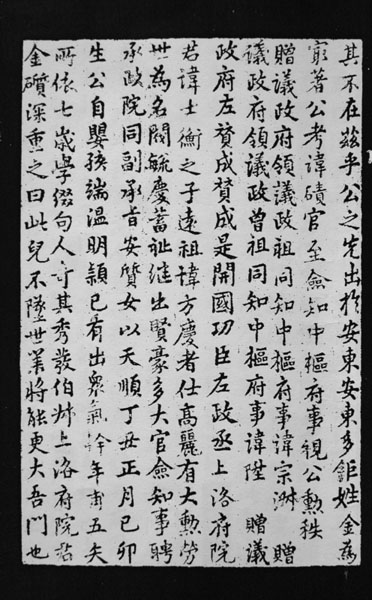 其不在玆乎公之先出於安東安東多鉅姓金爲
窮著公考諱礩官至僉知中樞府事視公勳秩
贈議政府領議政祖同知中樞府事諱宗淋 贈
議政府領議政曾祖同知中樞府事諱陞 贈議
政府左贊成贊成是開國功臣左政丞上洛府院
君諱士衡之子遠祖諱方慶者仕高麗有大勳勞
世爲名閥毓慶蓄祉継出賢豪多大官僉知事聘
承政院同副承旨安質女以天順丁丑正月己卯
生公自嬰孩端温明穎已有出衆氣幹年甫五失
所依七歲學綴句人奇其秀發伯叔上洛府院君
金礩深重之曰此兒不墜世業將能更大吾門也